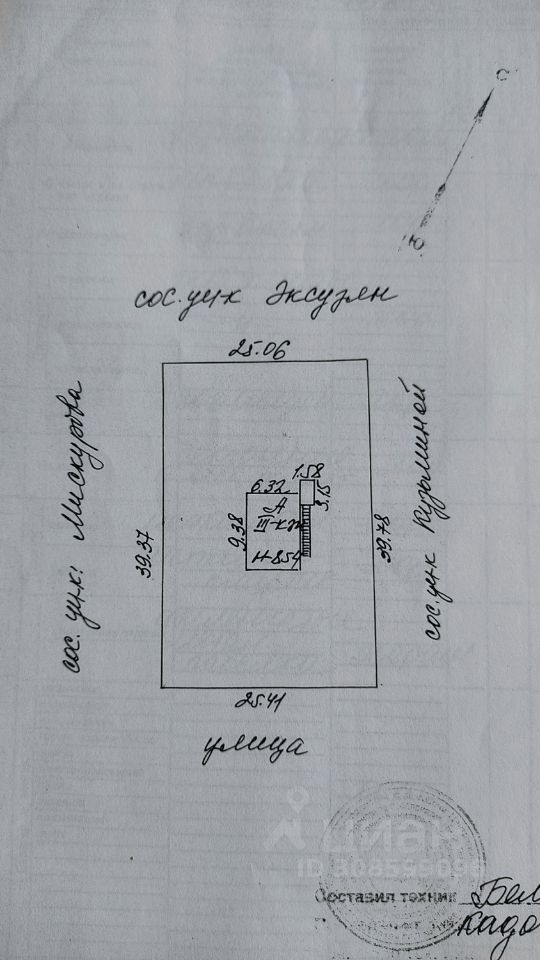 С
Ю
сос. уч-к Эксузян
25.06
сос. уч-к: Мискурова
39.37
1.58
6.32
3.15
А
III-кж
9.38
H-8.54
39.78
сос. уч-к Кузьминой
25.41
улица
циан
Составил техник Бел